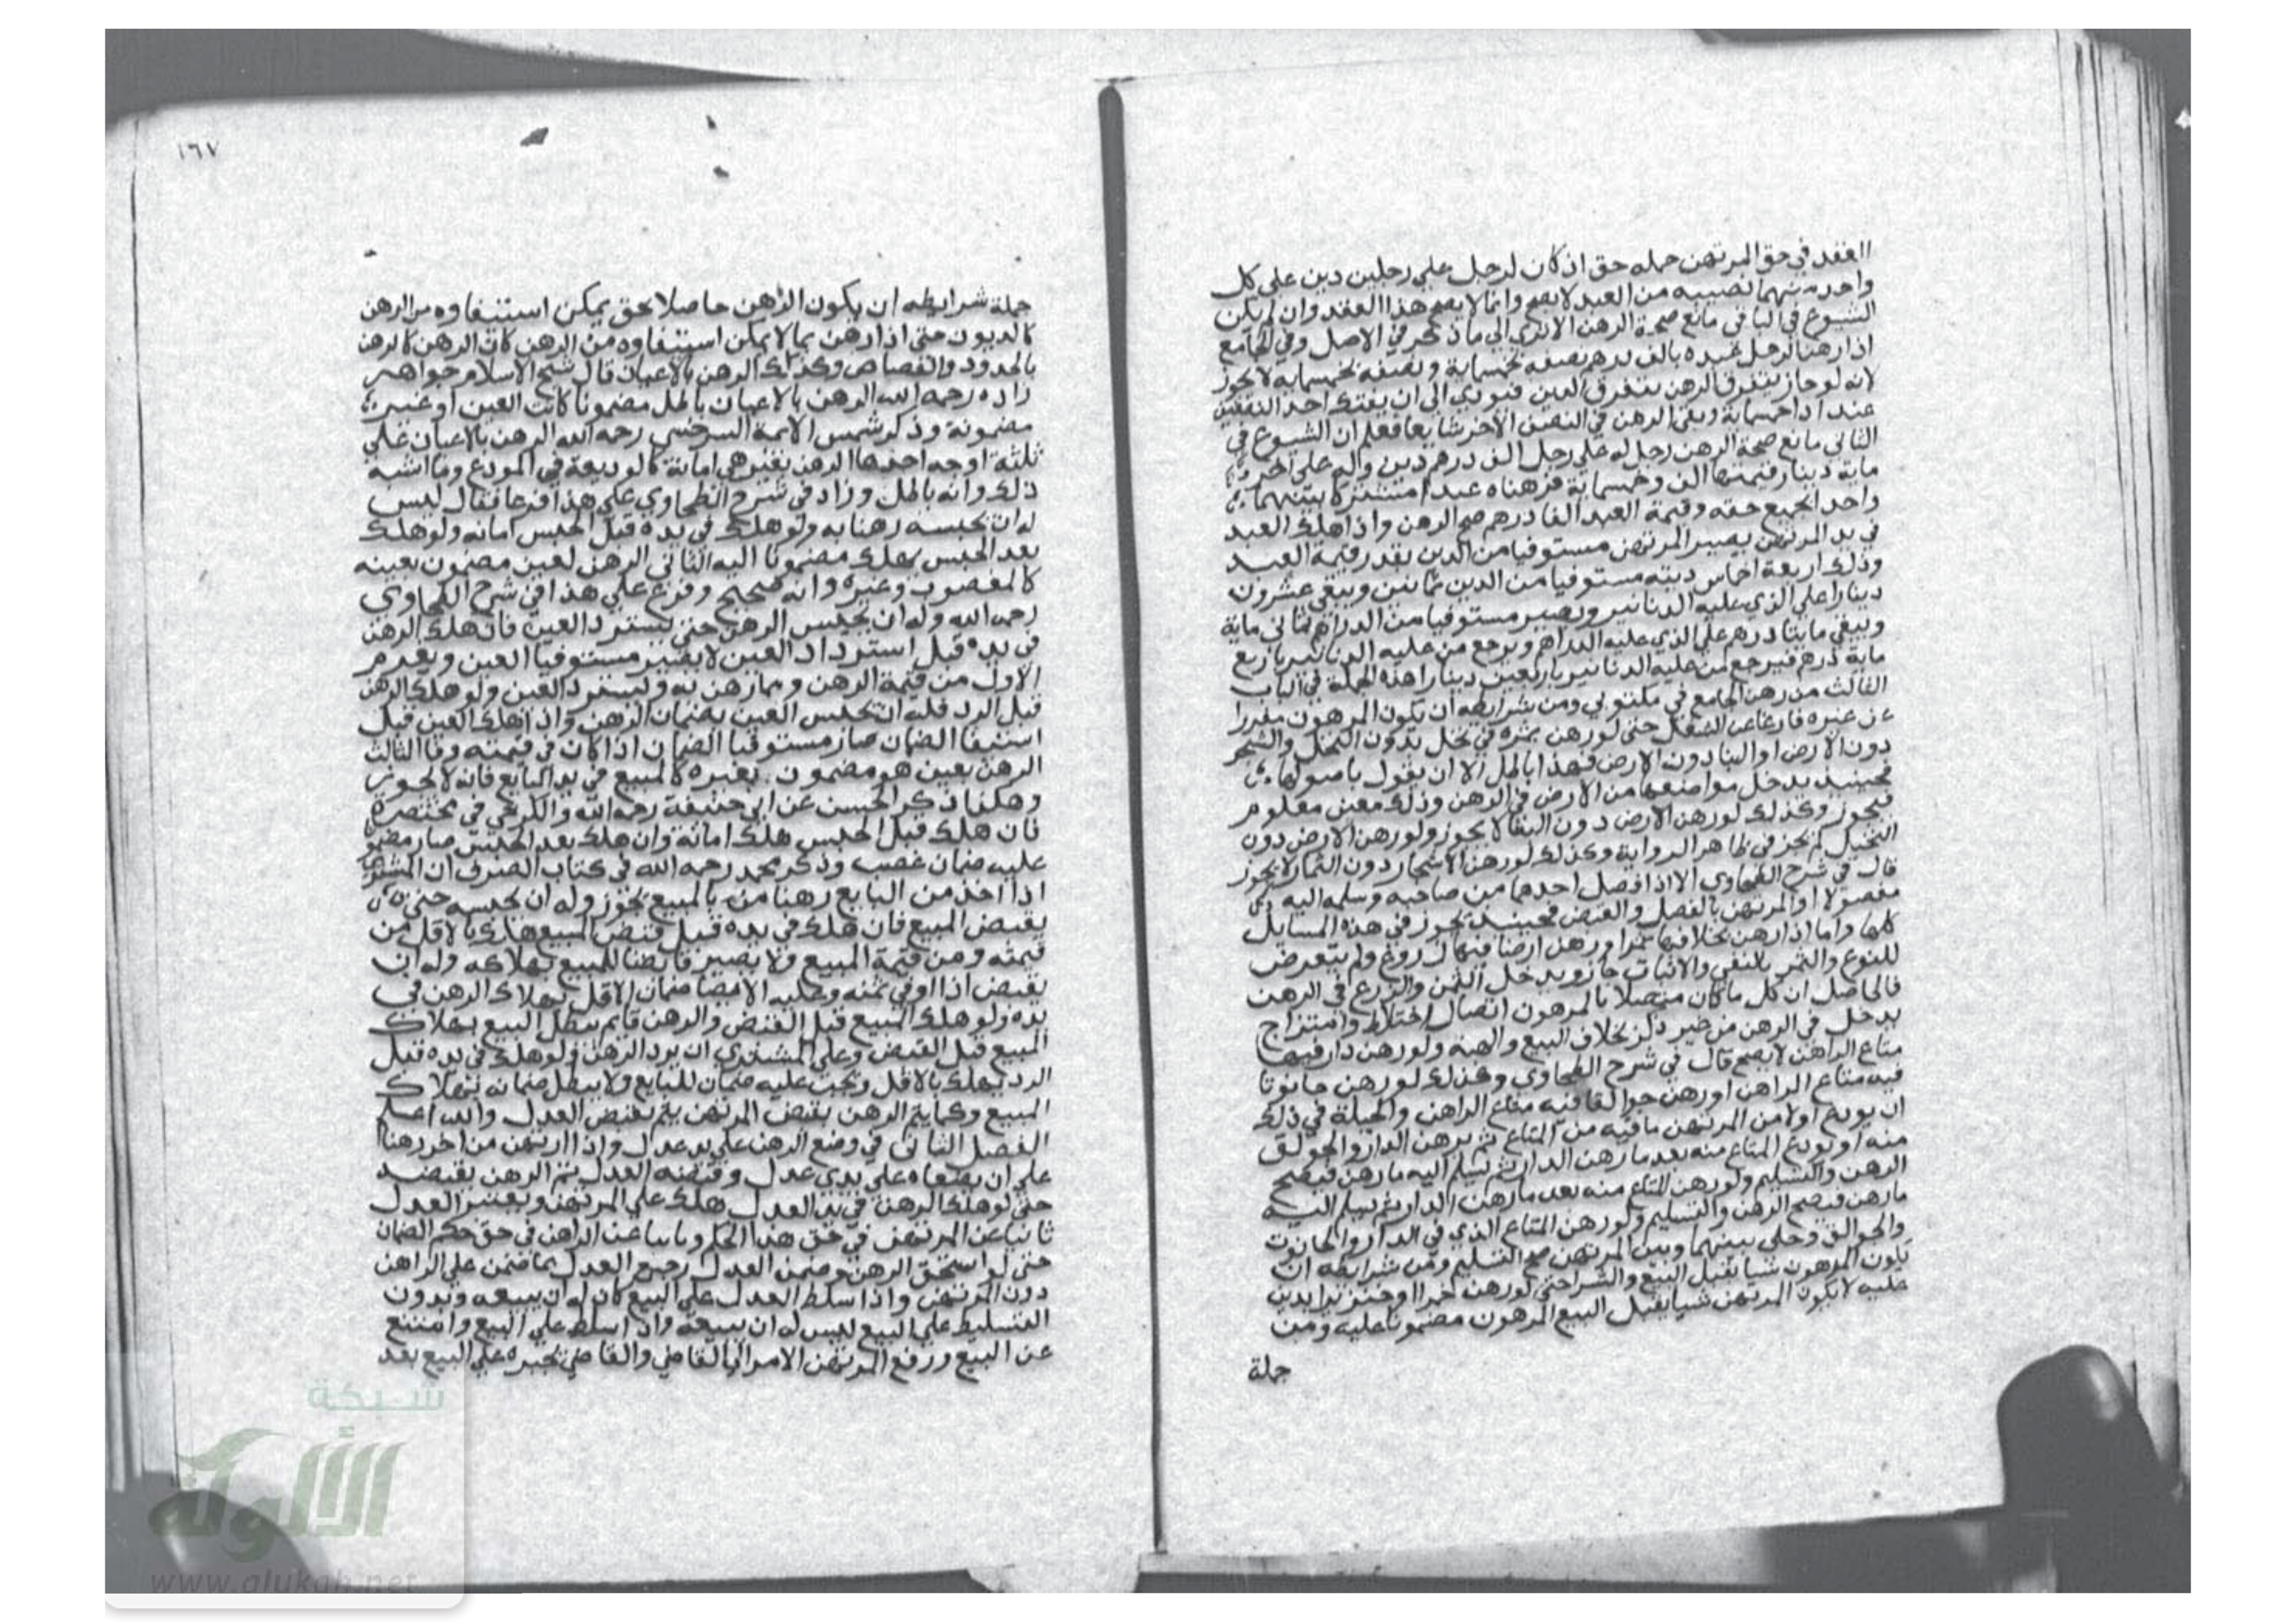 العقد في حق المرتهن جمله حق اذ كان لرجل علي رجلين دين علي كل
واحد منهما نصيبه من العبد لا يصح وانما لا يصح هذا العقد وان لم يكن
الشيوع في الباقي مانع صحة الرهن الا تري الي ما ذكر في الاصل وفي الجامع
اذا رهن الرجل عبده بالف درهم نصفه بخمسماية ونصفه بخمسمايه لا يجوز
لانه لو جاز يتفرق الرهن بتفرق الدين فيودي الي ان يفتك احد النصفين
عند اداخمسماية ويبقي الرهن في النصف الاخر شايعا فعلم ان الشيوع في
الثاني مانع صحة الرهن رجل له علي رجل الف درهم دين وله علي اخر
ماية دينار قيمتها الف وخمسماية فرهناه عبدا مشتركا بينهما
واحد الجميع حقه وقيمة العبد الفا درهم صح الرهن واذا هلك العبد
في يد المرتهن يصير المرتهن مستوفيا من الدين بقدر قيمة العبد
وذلك اربعة اخماس دينه مستوفيا من الدين ثمانين ويبقي عشرون
دينارا علي الذي عليه الدنانير ويصير مستوفيا من الدراهم ثماني ماية
ويبقي مايتا درهم علي الذي عليه الدراهم ويرجع من عليه الدنانير باربع
ماية درهم فيرجع من عليه الدنانير باربعين دينارا هذه الجملة في الباب
الثالث من رهن الجامع في ملتوبي ومن شرايطه ان يكون المرهون مفرزا
عن غيره فارغا عن الشغل حتي لو رهن ثمره في نخل بدون النخل والشجر
دون الارض او البنا دون الارض فهذا باطل الا ان يقول باصولها
فحينيذ يدخل مواضعها من الارض في الرهن وذلك معين معلوم
فيجوز وكذلك لو رهن الارض دون البنا لا يجوز ولو رهن الارض دون
النخيل لم يجز في ظاهر الرواية وكذلك لو رهن الاشجار دون الثمار لا يجوز
قال في شرح الطحاوي الا اذا فصل احدهما من صاحبه وسلمه اليه
مفصولا او المرتهن بالفصل والقبض فحينيذ يجوز في هذه المسايل
كلها واما اذا رهن نخلا فيها تمرا او رهن ارضا فيها زروع ولم يتعرض
للنوع والتمر بالنفي والاثبات جاز ويدخل الثمن والزرع في الرهن
فالحاصل ان كل ما كان متصلا بالمرهون اتصال اختلاط وامتزاج
يدخل في الرهن من غير ذكر بخلاف البيع والهبه ولو رهن دار فيها
متاع الراهن لا يصح قال في شرح الطحاوي وكذلك لو رهن حانوتا
فيه متاع الراهن او رهن جوالقا فيه متاع الراهن والحيلة في ذلك
ان يودع اولا من المرتهن ما فيه من المتاع ثم يرهن الدار والجوالق
منه او يودع المتاع منه بعد ما رهن الدار ثم يسلم اليه ما رهن فيصح
الرهن والتسليم ولو رهن المتاع منه بعد ما رهن الدار ثم يسلم اليه
ما رهن فيصح الرهن والتسليم ولو رهن المتاع الذي في الدار والحانوت
والجوالق وخلي بينهما وبين المرتهن صح التسليم ومن شرايطه ان
يكون المرهون شيا يقبل البيع والشرا حتي لو رهن خمرا او خنزيرا بدين
عليه لا يكون المرتهن شيا يقبل البيع المرهون مضمونا عليه ومن
جملة
١٦٧
جملة شرايطه ان يكون الرهن حاصلا بحق يمكن استيفاوه من الرهن
كالديون حتي اذا رهن بما لا يمكن استيفاوه من الرهن كان الرهن كالرهن
بالحدود والقصاص وكذلك الرهن بالاعيان قال شيخ الاسلام خواهر
زاده رحمه الله الرهن بالاعيان باطل مضمونا كانت العين او غير
مضمونة وذكر شمس الايمة السرخسي رحمه الله الرهن بالاعيان علي
ثلثة اوجه احدها الرهن بعين هي امانة كالوديعة في المودع وما اشبه
ذلك وانه باطل وزاد في شرح الطحاوي علي هذا فرعا فقال ليس
له ان يحبسه رهنا به ولو هلك في يده قبل الحبس امانه ولو هلك
بعد الحبس يهلك مضمونا اليه الثاني الرهن لعين مضمون بعينه
كالمغصوب وغيره وانه صحيح وفرع علي هذا في شرح الطحاوي
رحمه الله وله ان يحبس الرهن حتي يسترد العين فان هلك الرهن
في يده قبل استرداد العين لا يصير مستوفيا العين ويغدم
الاول من قيمة الرهن ومما رهن به وليسترد العين ولو هلك الرهن
قبل الرد فله ان يحبس العين بضمان الرهن واذا هلك العين قبل
استيفا الضمان صار مستوفيا الضمان اذا كان في قيمته وفا الثالث
الرهن بعين هو مضمون بغيره كالمبيع في يد البايع فانه لا يجوز
وهكذا ذكر الحسن عن ابي حنيفة رحمه الله والكرخي في مختصره
فان هلك قبل الحبس هلك امانة وان هلك بعد الحبس صار مضمو
عليه ضمان غصب وذكر محمد رحمه الله في كتاب الصرف ان المشتري
اذا اخذ من البايع رهنا من بالمبيع يجوز وله ان يحبسه حتي
يقبض المبيع فان هلك في يده قبل قبض المبيع هلك بالاقل من
قيمته ومن قيمة المبيع ولا يصير قابضا للمبيع بهلاكه وله ان
يقبض اذا اوفي ثمنه وعليه الا ايضا ضمان الاقل بهلاك الرهن في
يده ولو هلك المبيع قبل القبض والرهن قايم بطل البيع بهلاك
المبيع قبل القبض وعلي المشتري ان يرد الرهن ولو هلك في يده قبل
الرد يهلك بالاقل ويجب عليه ضمان للبايع ولا يبطل ضمانه بهلاك
المبيع وكما يتم الرهن بقبض المرتهن يتم بقبض العدل والله اعلم
الفصل الثاني في وضع الرهن علي يد عدل واذا ارتهن من اخر رهنا
علي ان يضعاه علي يدي عدل وقبضه العدل تم الرهن بقبضه
حتي لو هلك الرهن في يد العدل هلك علي المرتهن ويعتبر العدل
نايبا عن المرتهن في حق هذا الحكم ونايبا عن الراهن في حق حكم الضمان
حتي لو استحق الرهن وضمن العدل رجع العدل بما ضمن علي الراهن
دون المرتهن واذا سلط العدل علي البيع كان له ان يبيعه وبدون
التسليط علي البيع ليس له ان يبيعه واذا سلط علي البيع وامتنع
عن البيع ورفع المرتهن الامر الي القاضي والقاضي يجبره علي البيع بعد
شبكة
الألوكة
www.alukah.net